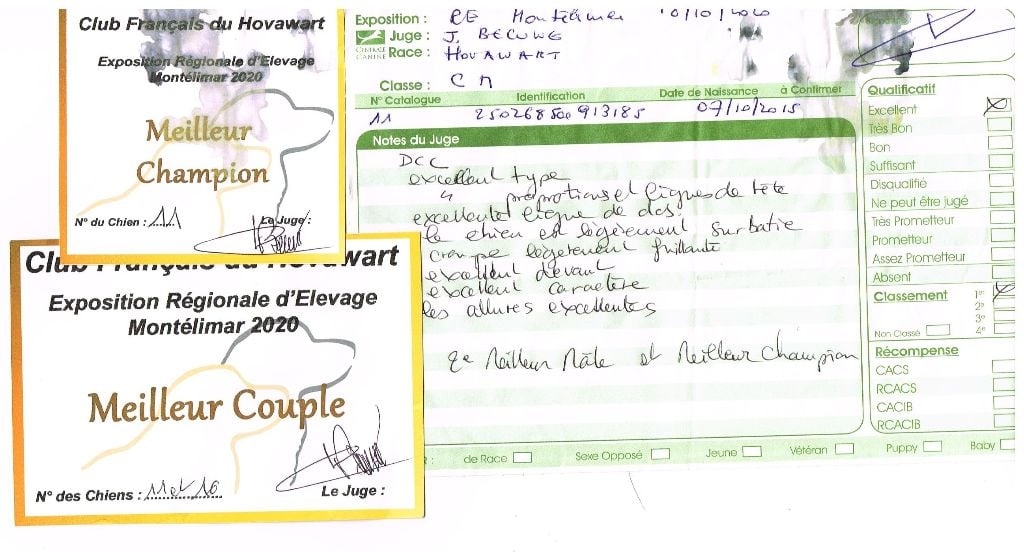 Club Français du Hovawart
Exposition Régionale d'Elevage
Montélimar 2020
Meilleur
Champion
N° du Chien : 11
Le Juge :
Club Français du Hovawart
Exposition Régionale d'Elevage
Montélimar 2020
Meilleur Couple
N° des Chiens : 11 et 10
Le Juge :
Exposition : RE Montélimar 10/10/2020
Juge : J. BECUWE
CENTRALE
CANINE
Race : HOVAWART
Classe : CH
N° Catalogue Identification Date de Naissance à Confirmer
11 250268500913185 07/10/2015
Notes du Juge
DCC
excellent type
" proportions et lignes de tête
excellente ligne de dos.
le chien est légèrement surbatie
croupe légèrement fuillante
excellent devant
excellent caractère
les allures excellentes
2e Meilleur Mâle et Meilleur Champion
de Race
Sexe Opposé
Jeune
Vétéran
Puppy
Baby
Qualificatif
Excellent
Très Bon
Bon
Suffisant
Disqualifié
Ne peut être jugé
Très Prometteur
Prometteur
Assez Prometteur
Absent
Classement 1er
2e
3e
Non Classé 4e
Récompense
CACS
RCACS
CACIB
RCACIB